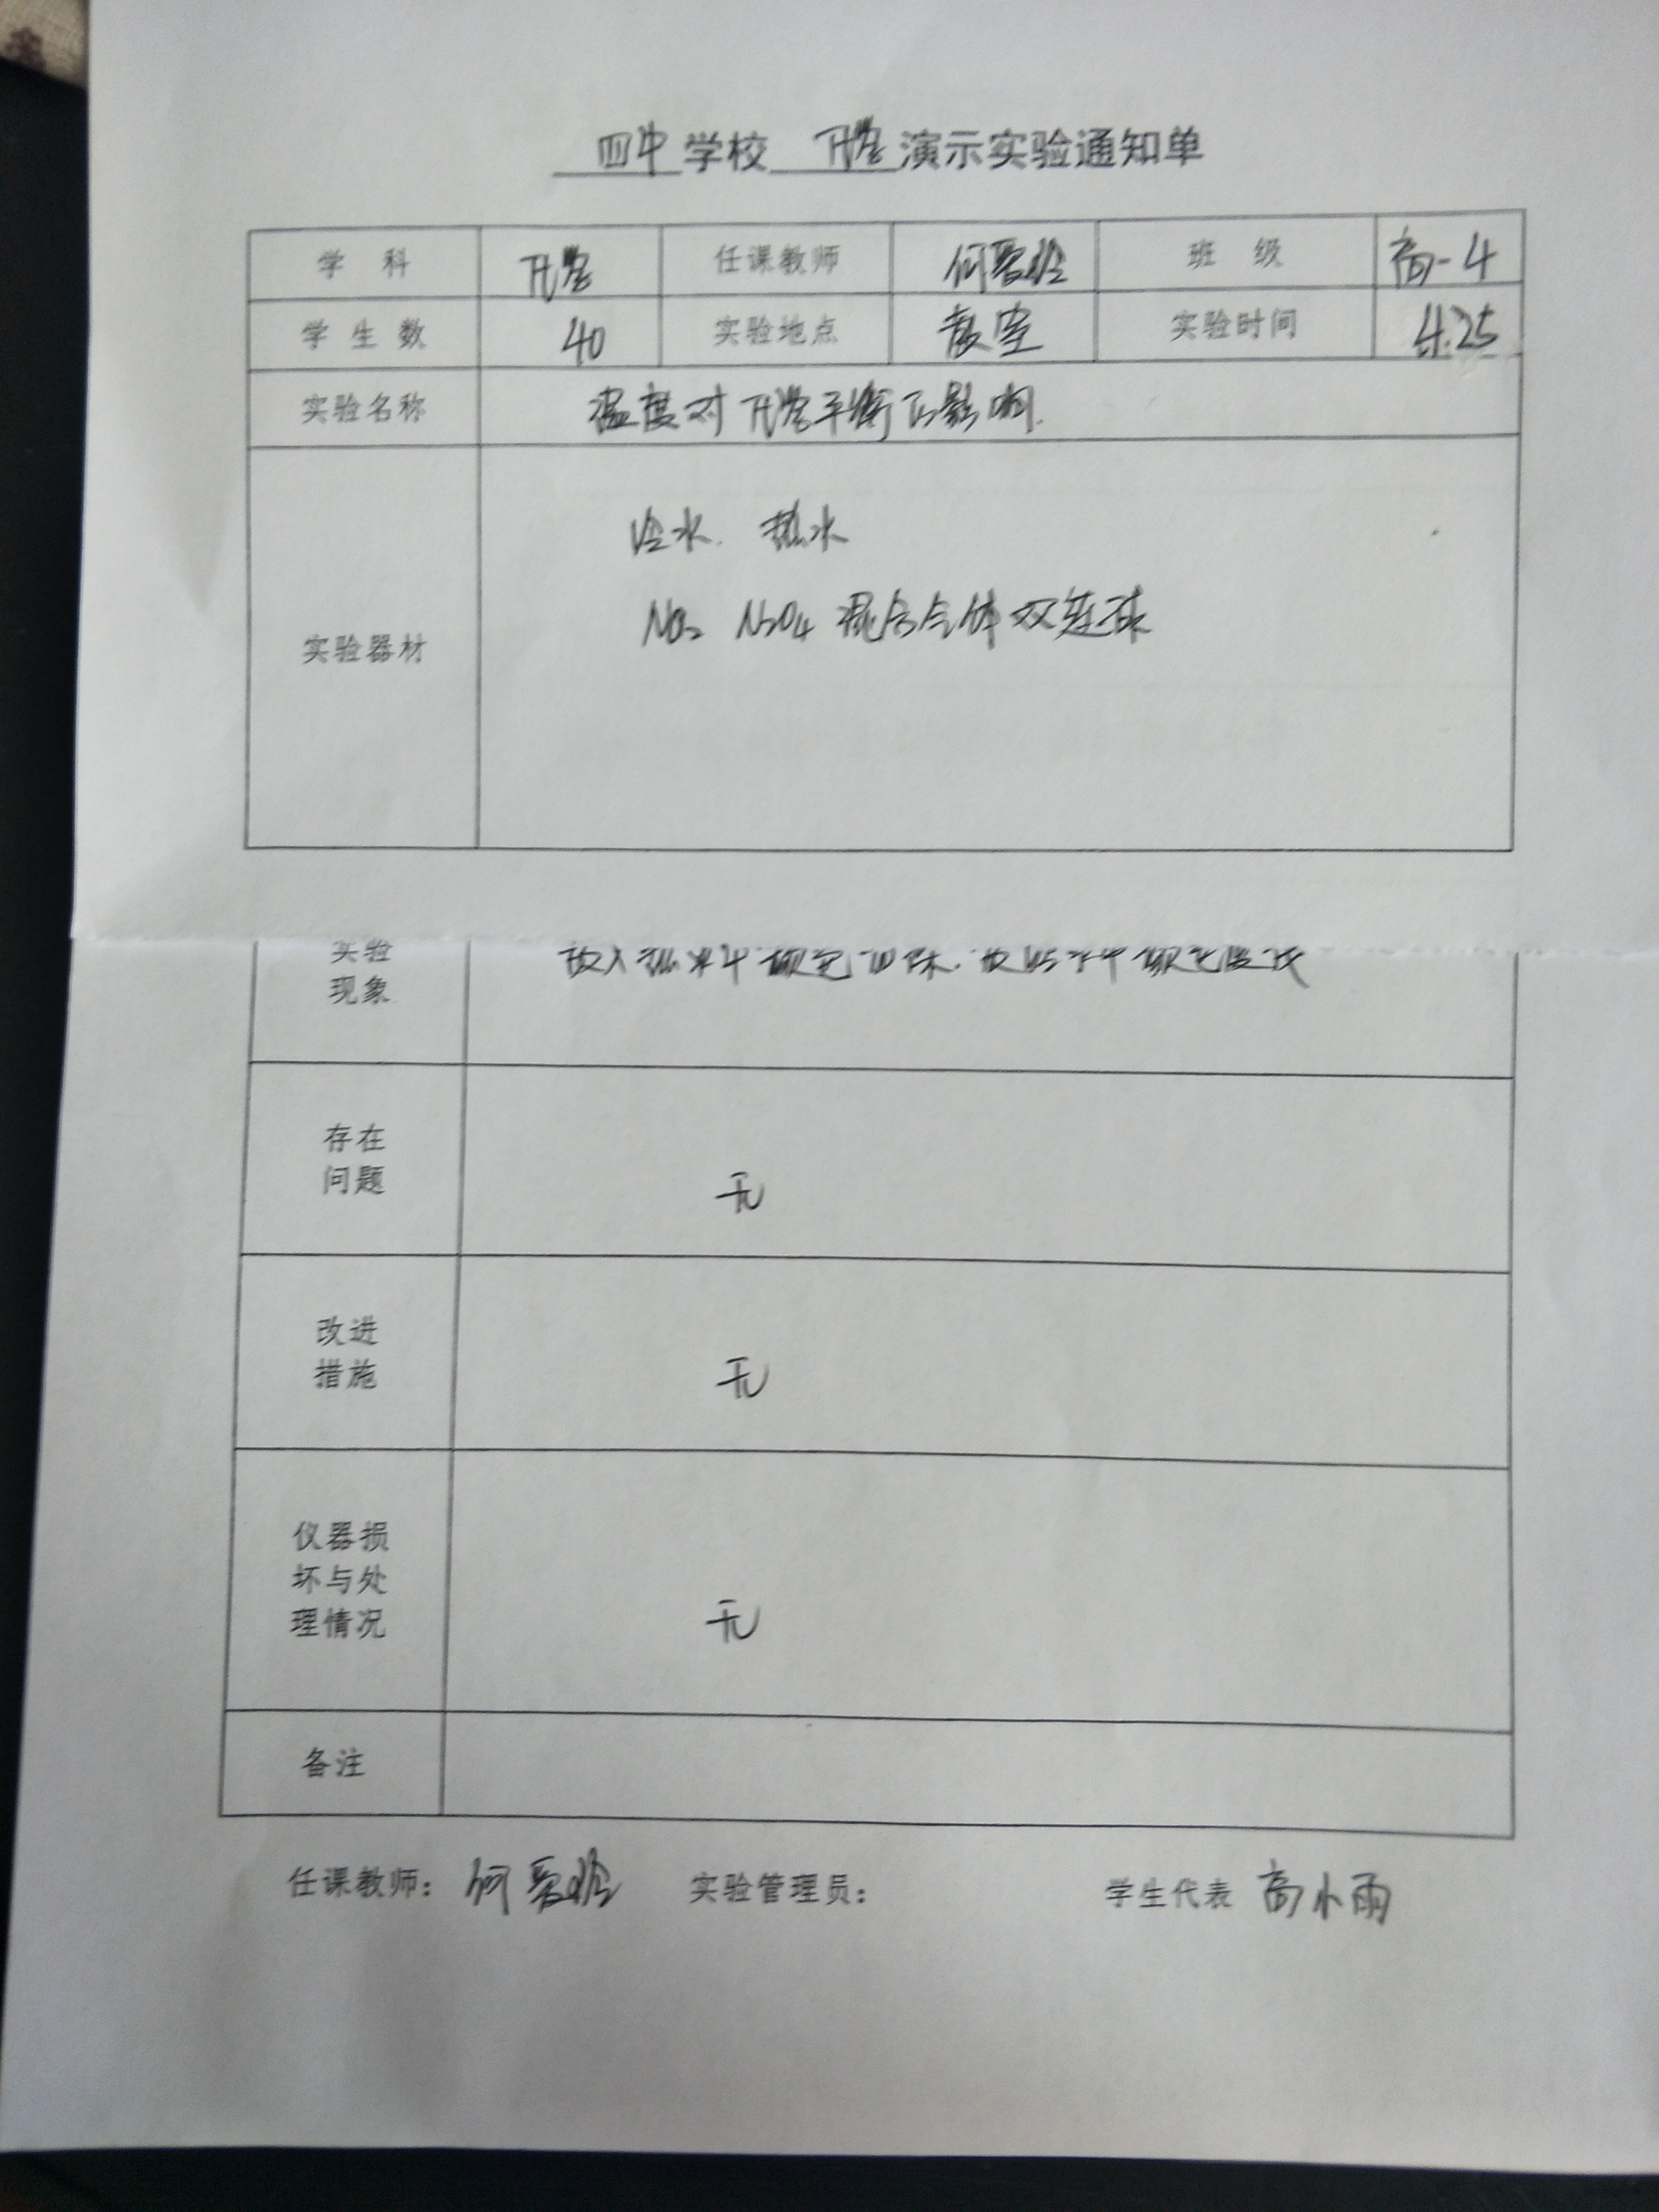 四中学校 化学演示实验通知单
学 科 化学 任课教师 何 班 级 高一4
学 生 数 40 实验地点 教室 实验时间 4.25
实验名称 温度对化学平衡的影响.
冷水. 热水
NO₂ N₂O₄ 混合气体双连球
实验器材
实验 放入热水中颜色加深.放
现象
存在
问题
无
改进
措施 无
仪器损
坏与处
理情况 无
备注
任课教师: 何 实验管理员: 学生代表 高小雨